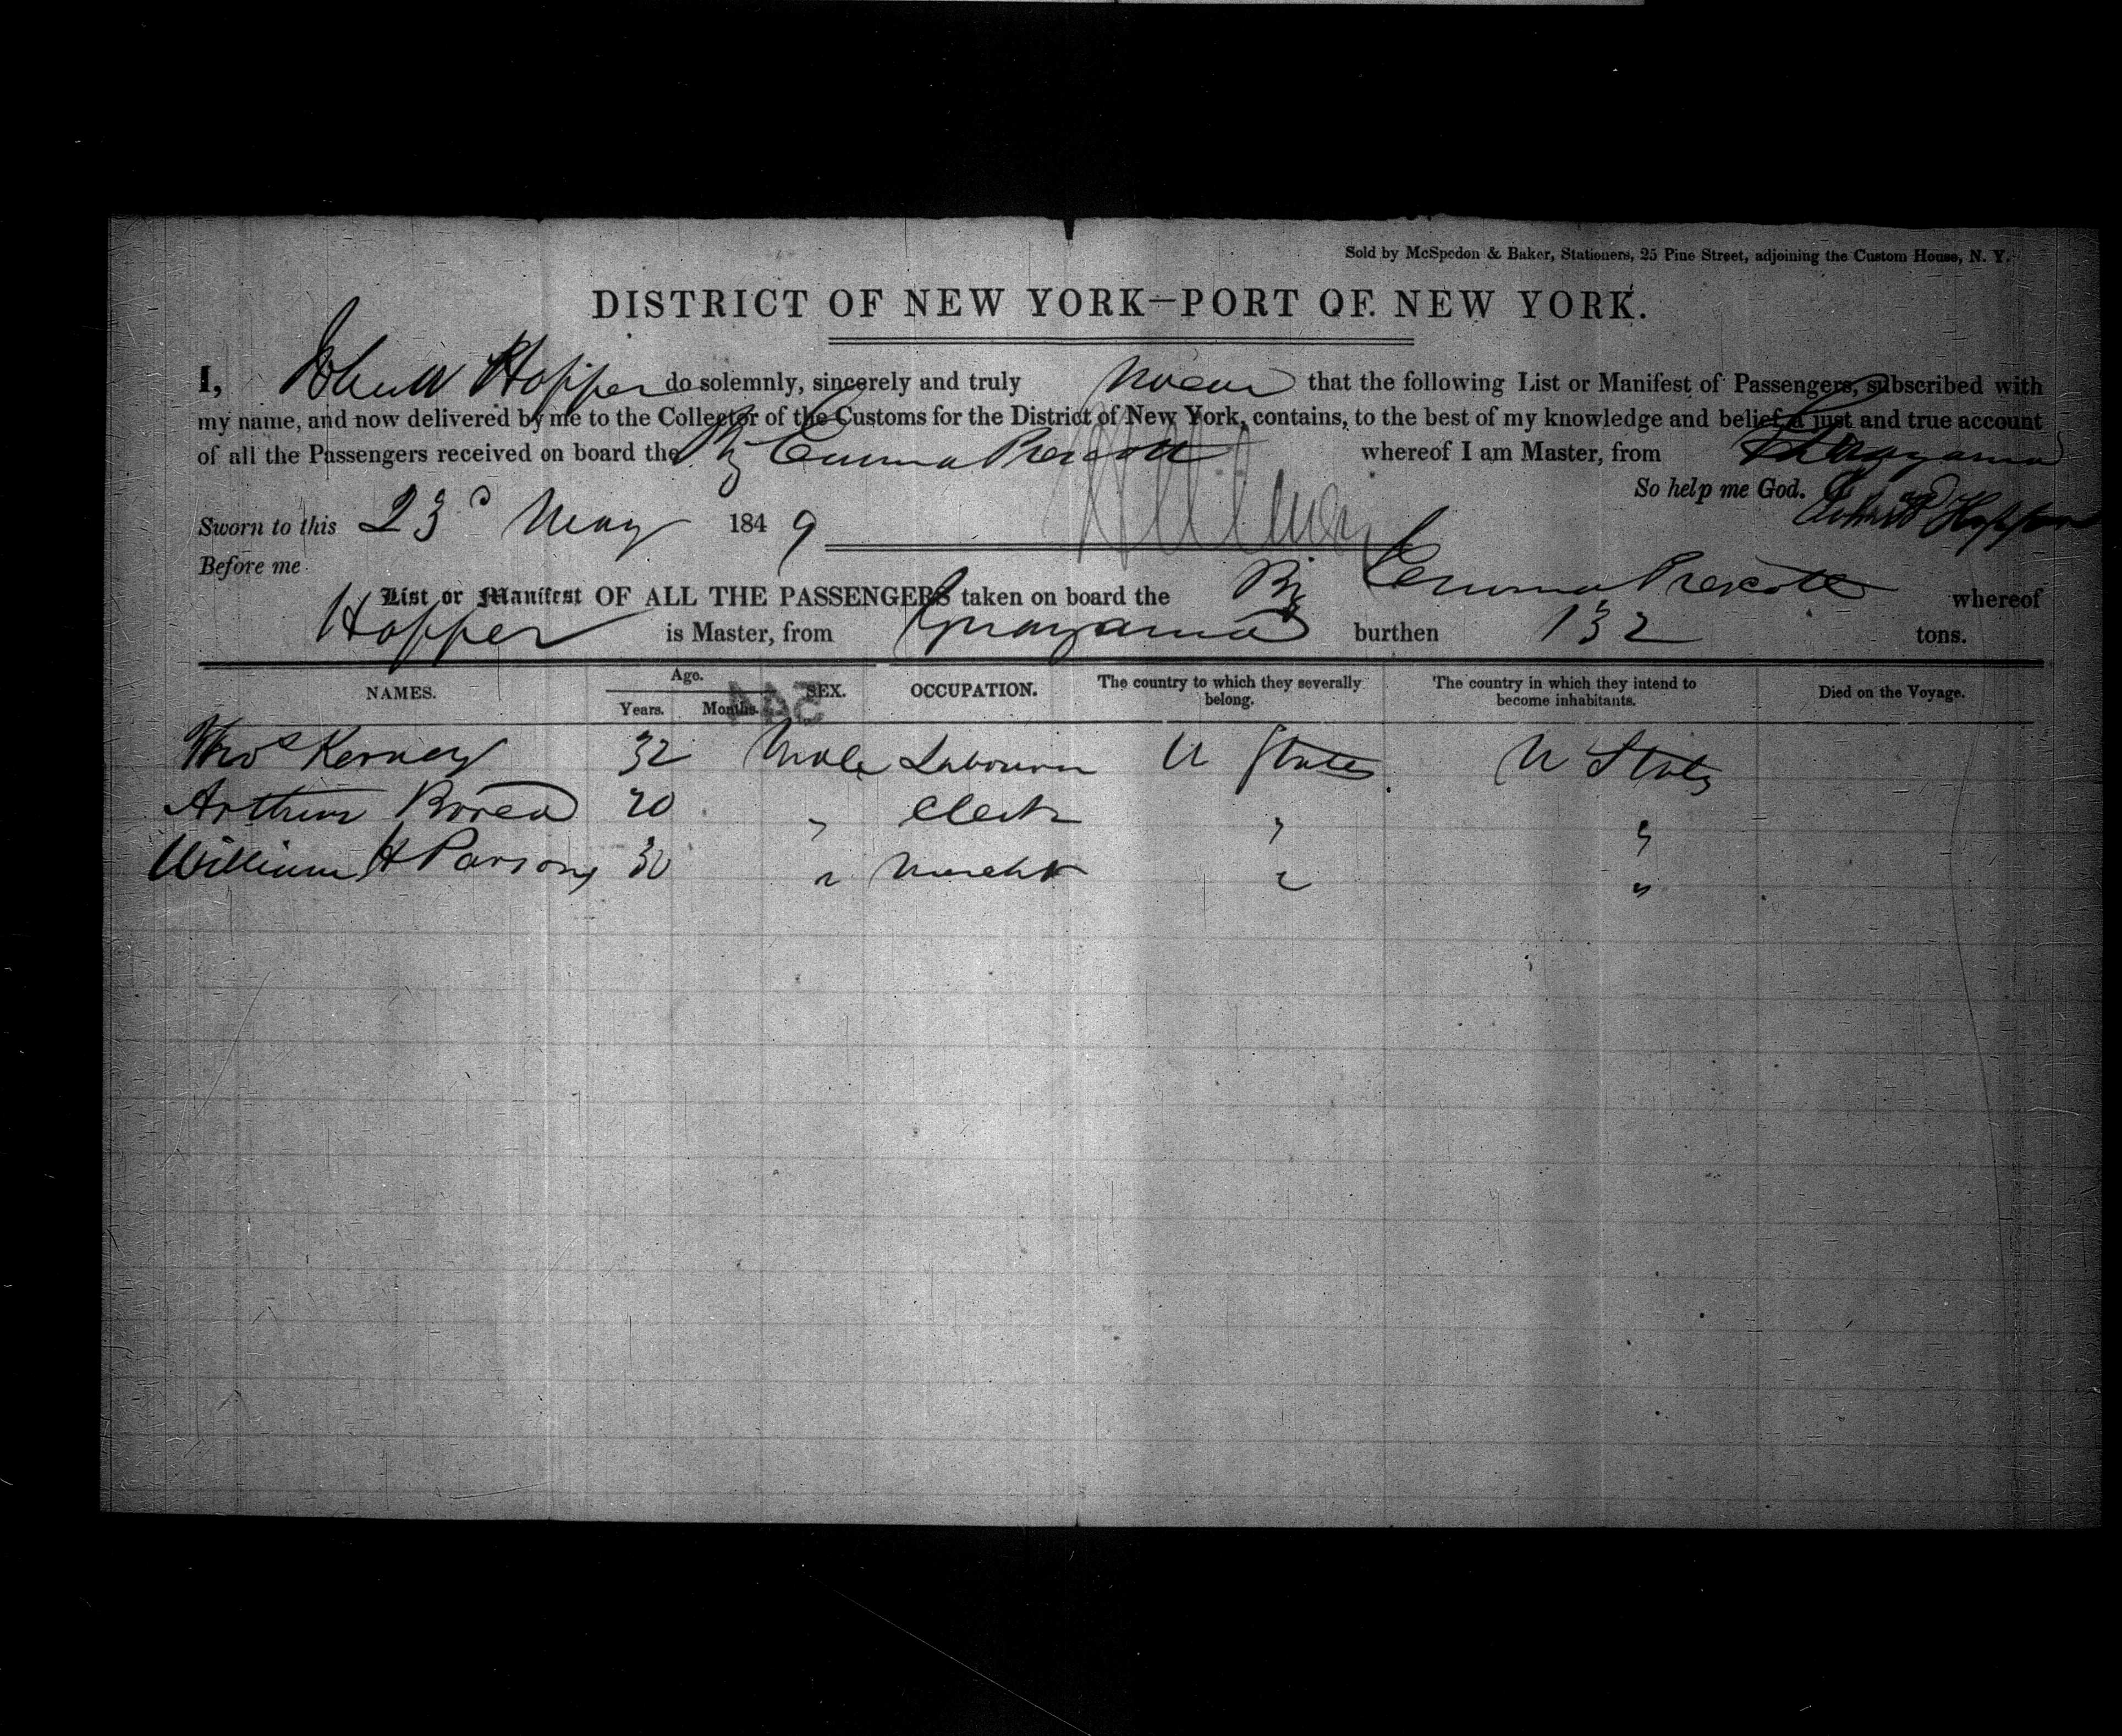 Sold by McSpedon & Baker, Stationers, 25 Pine Street, adjoining the Custom House, N. Y.
DISTRICT OF NEW YORK—PORT OF NEW YORK.
I, John W Hopper do solemnly, sincerely and truly swear that the following List or Manifest of Passengers, subscribed with
my name, and now delivered by me to the Collector of the Customs for the District of New York, contains, to the best of my knowledge and belief, a just and true account
of all the Passengers received on board the Brig Emma Prescott whereof I am Master, from Guayama
So help me God.
Sworn to this 23d May 1849
Before me
List or Manifest OF ALL THE PASSENGERS taken on board the Brig Emma Prescott whereof
Hopper is Master, from Guayama burthen 132 tons.
NAMES. Age. Years. Months. SEX. OCCUPATION. The country to which they severally belong. The country in which they intend to become inhabitants. Died on the Voyage.
544
Thos Kerney 32 Male Labourer U States U States
Arthur 20 " Clerk " "
William H Parsons 30 " Mercht " "